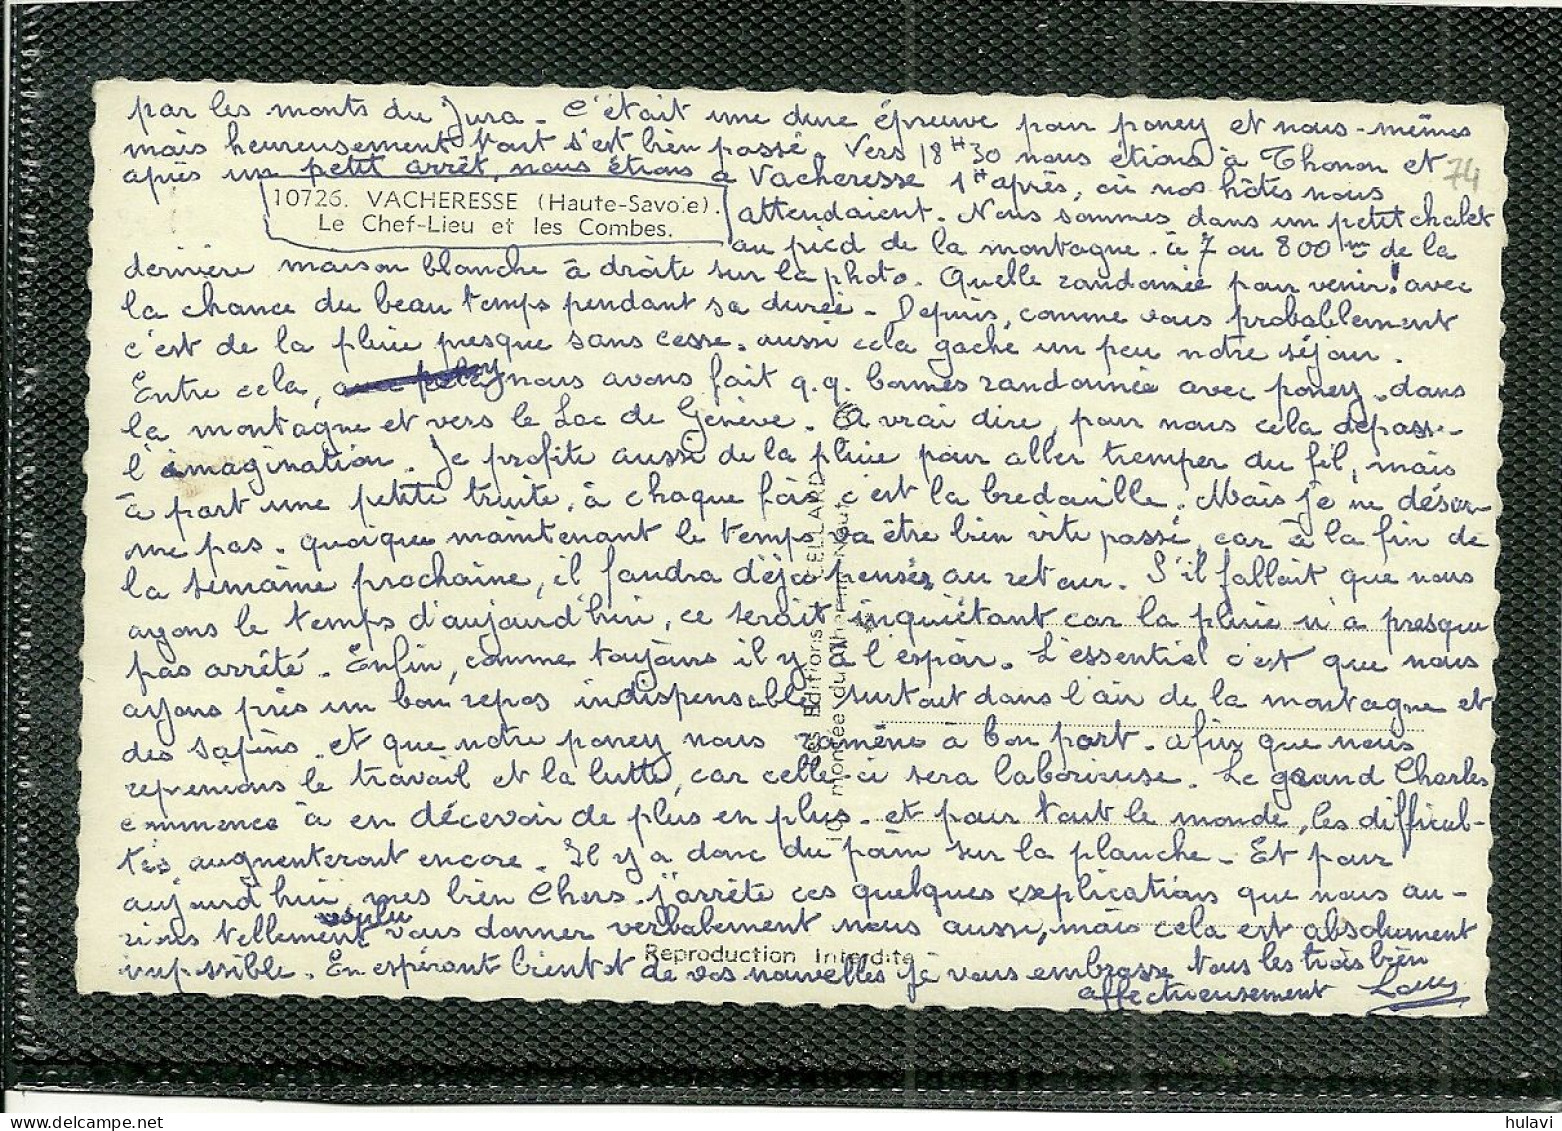 par les monts du Jura. C'était une dure épreuve pour poney et nous-mêmes
mais heureusement tout s'est bien passé. Vers 18H30 nous étions à Thonon et
après un petit arrêt, nous étions à Vacheresse 1H après, où nos hôtes nous
74
10726. VACHERESSE (Haute-Savoie).
Le Chef-Lieu et les Combes.
attendaient. Nous sommes dans un petit chalet
au pied de la montagne. à 7 ou 800m de la
dernière maison blanche à droite sur la photo. Quelle randonnée pour venir! avec
la chance du beau temps pendant sa durée. Depuis, comme vous probablement
c'est de la pluie presque sans cesse. aussi cela gache un peu notre séjour.
Entre cela, nous avons fait q.q. bonnes randonnée avec poney. dans
la montagne et vers le Lac de Genève. A vrai dire, pour nous cela dépasse
l'imagination. Je profite aussi de la pluie pour aller tremper du fil, mais
à part une petite truite, à chaque fois c'est la bredouille. Mais je ne désar-
me pas. quoique maintenant le temps va être bien vite passé, car à la fin de
la semaine prochaine, il faudra déjà penser au retour. S'il fallait que nous
ayons le temps d'aujourd'hui, ce serait inquiétant car la pluie n'a presque
pas arrêté. Enfin, comme toujours il y a l'espoir. L'essentiel c'est que nous
ayons pris un bon repos indispensable, surtout dans l'air de la montagne et
des sapins. et que notre poney nous ramène à bon port. afin que nous
reprenions le travail et la lutte, car celle-ci sera laborieuse. Le grand Charles
commence à en décevoir de plus en plus. et pour tout le monde, les difficul-
tés augmenteront encore. Il y a donc du pain sur la planche. Et pour
aujourd'hui, mes bien Chers. j'arrête ces quelques explications que nous au-
rions tellement voulu vous donner verbalement nous aussi, mais cela est absolument
impossible. En espérant bientôt de vos nouvelles je vous embrasse tous les trois bien
affectueusement Louis
Les Editions CELLARD
Reproduction Interdite
hulavi